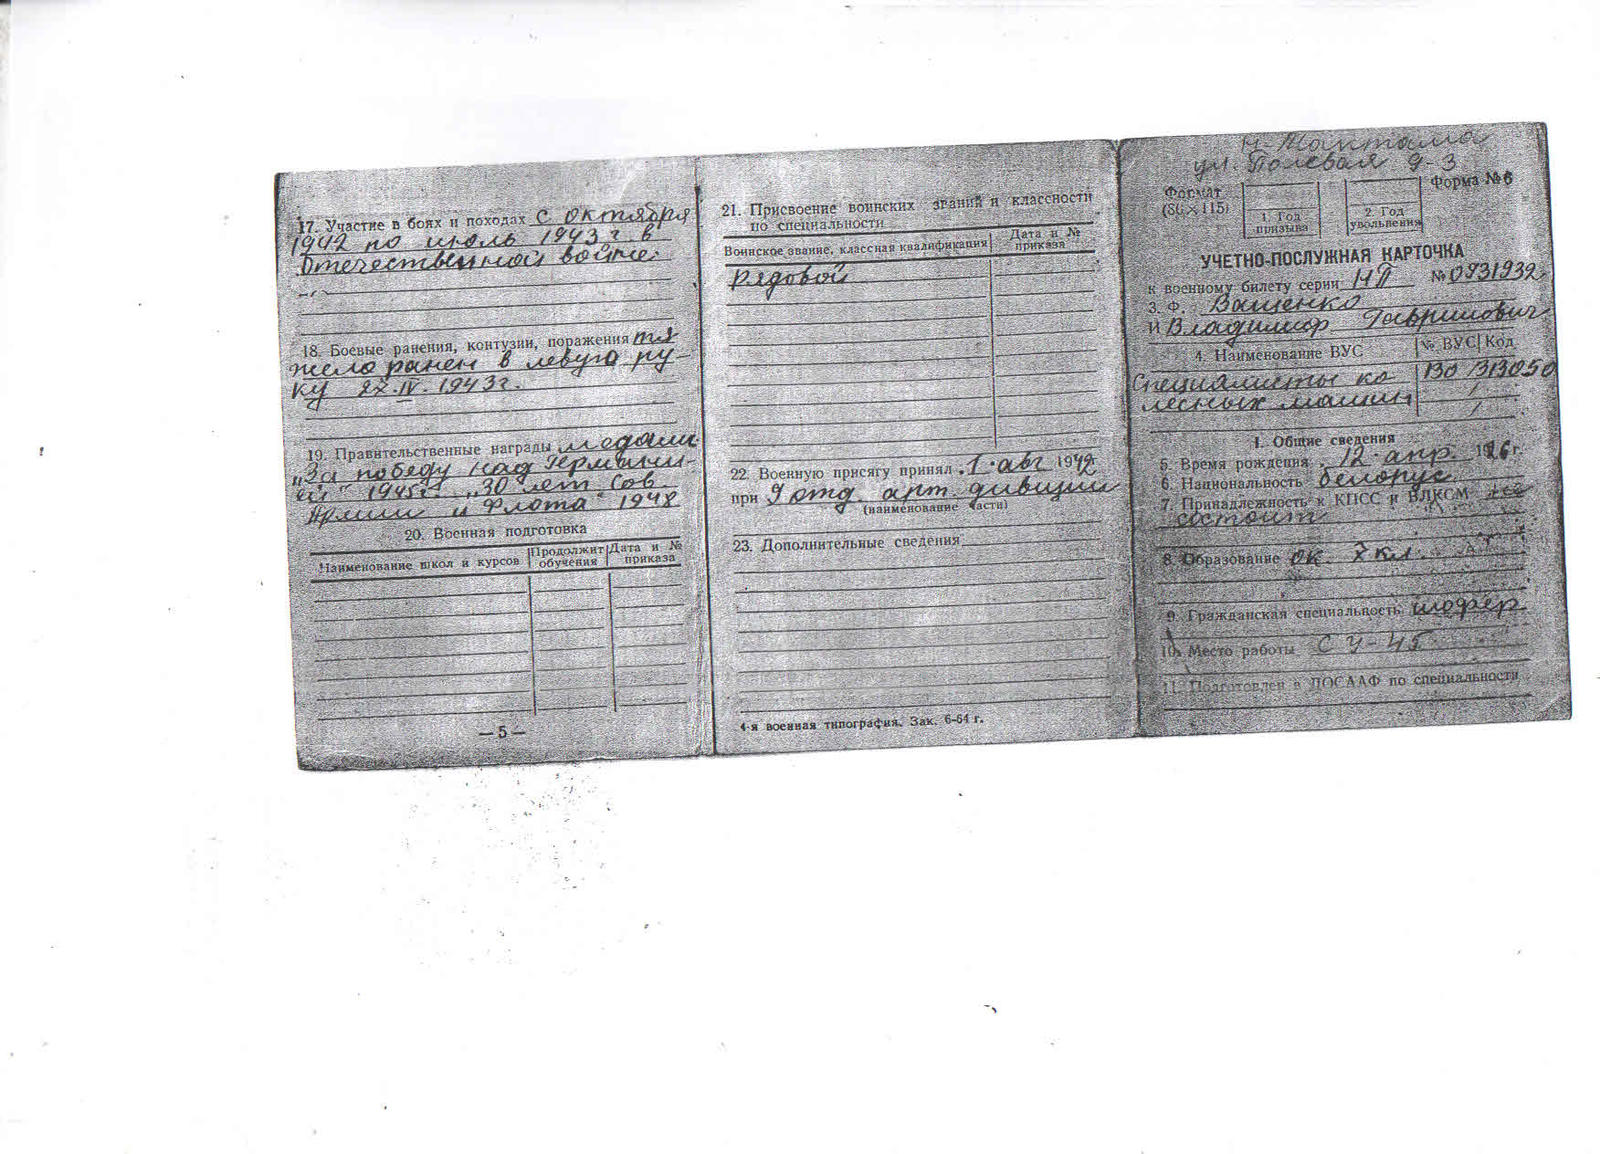 17. Участие в боях и походах с октября
1942 по июль 1943 г в
Отечественной войне.
18. Боевые ранения, контузии, поражения тя
жело ранен в левую ру-
ку 22.IV.1943г.
19. Правительственные награды медали
"За победу над Германи-
ей" 1945г. "30 лет Сов
Армии и Флота" 1948
20. Военная подготовка
Наименование школ и курсов
Продолжит обучения
Дата и № приказа
— 5 —
21. Присвоение воинских званий и классности
по специальности
Воинское звание, классная квалификация
Дата и № приказа
Рядовой
22. Военную присягу принял 1 авг 1942
при 9 отд. арт. дивизии
(наименование части)
23. Дополнительные сведения
4-я военная типография. Зак. 6-64 г.
ул. Полевая д-3
Формат
(86×115)
1. Год
призыва
2. Год
увольнения
Форма № 6
УЧЕТНО-ПОСЛУЖНАЯ КАРТОЧКА
к военному билету серии НП № 0731932
3. Ф. Ващенко
И Владимир Гаврилович
4. Наименование ВУС
№ ВУС Код
Специалисты ко
лесных машин
130 313050
I. Общие сведения
5. Время рождения 12 апр. 1926 г.
6. Национальность белорус
7. Принадлежность к КПСС и ВЛКСМ не
состоит
8. Образование ок. 7 кл.
9. Гражданская специальность шофер
10. Место работы СУ-45
11. Подготовлен в ДОСААФ по специальности